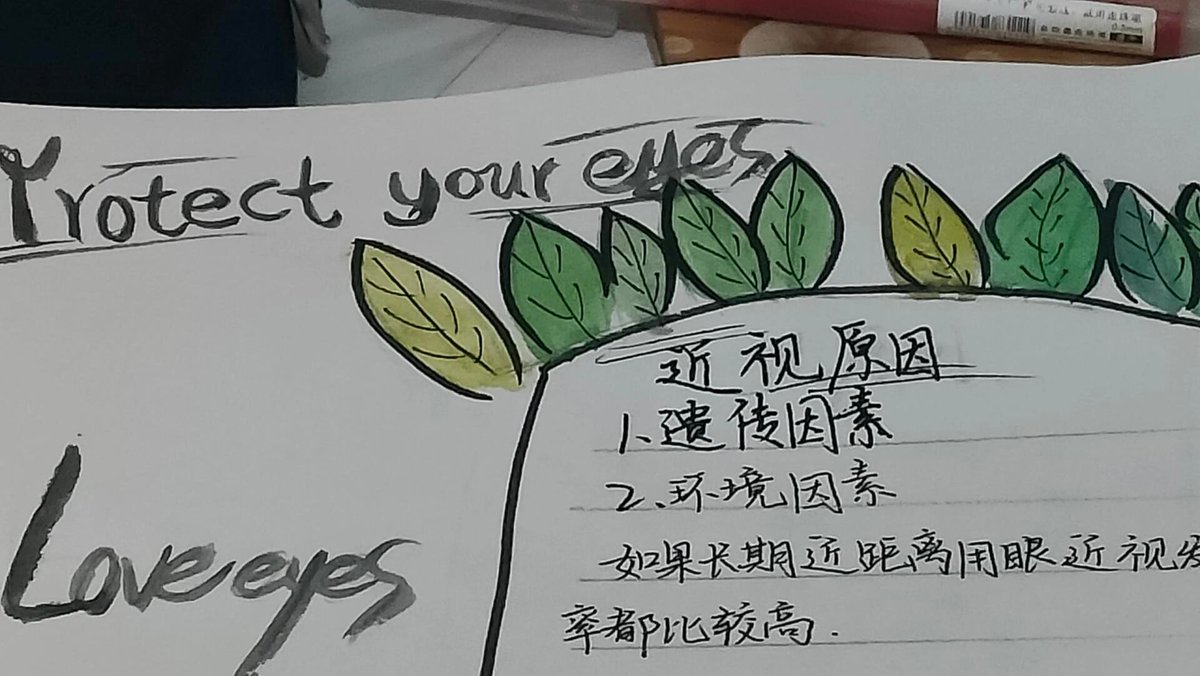 Protect your eyes
近视原因
1.遗传因素
2.环境因素
如果长期近距离用眼近视发
率都比较高.
Love eyes